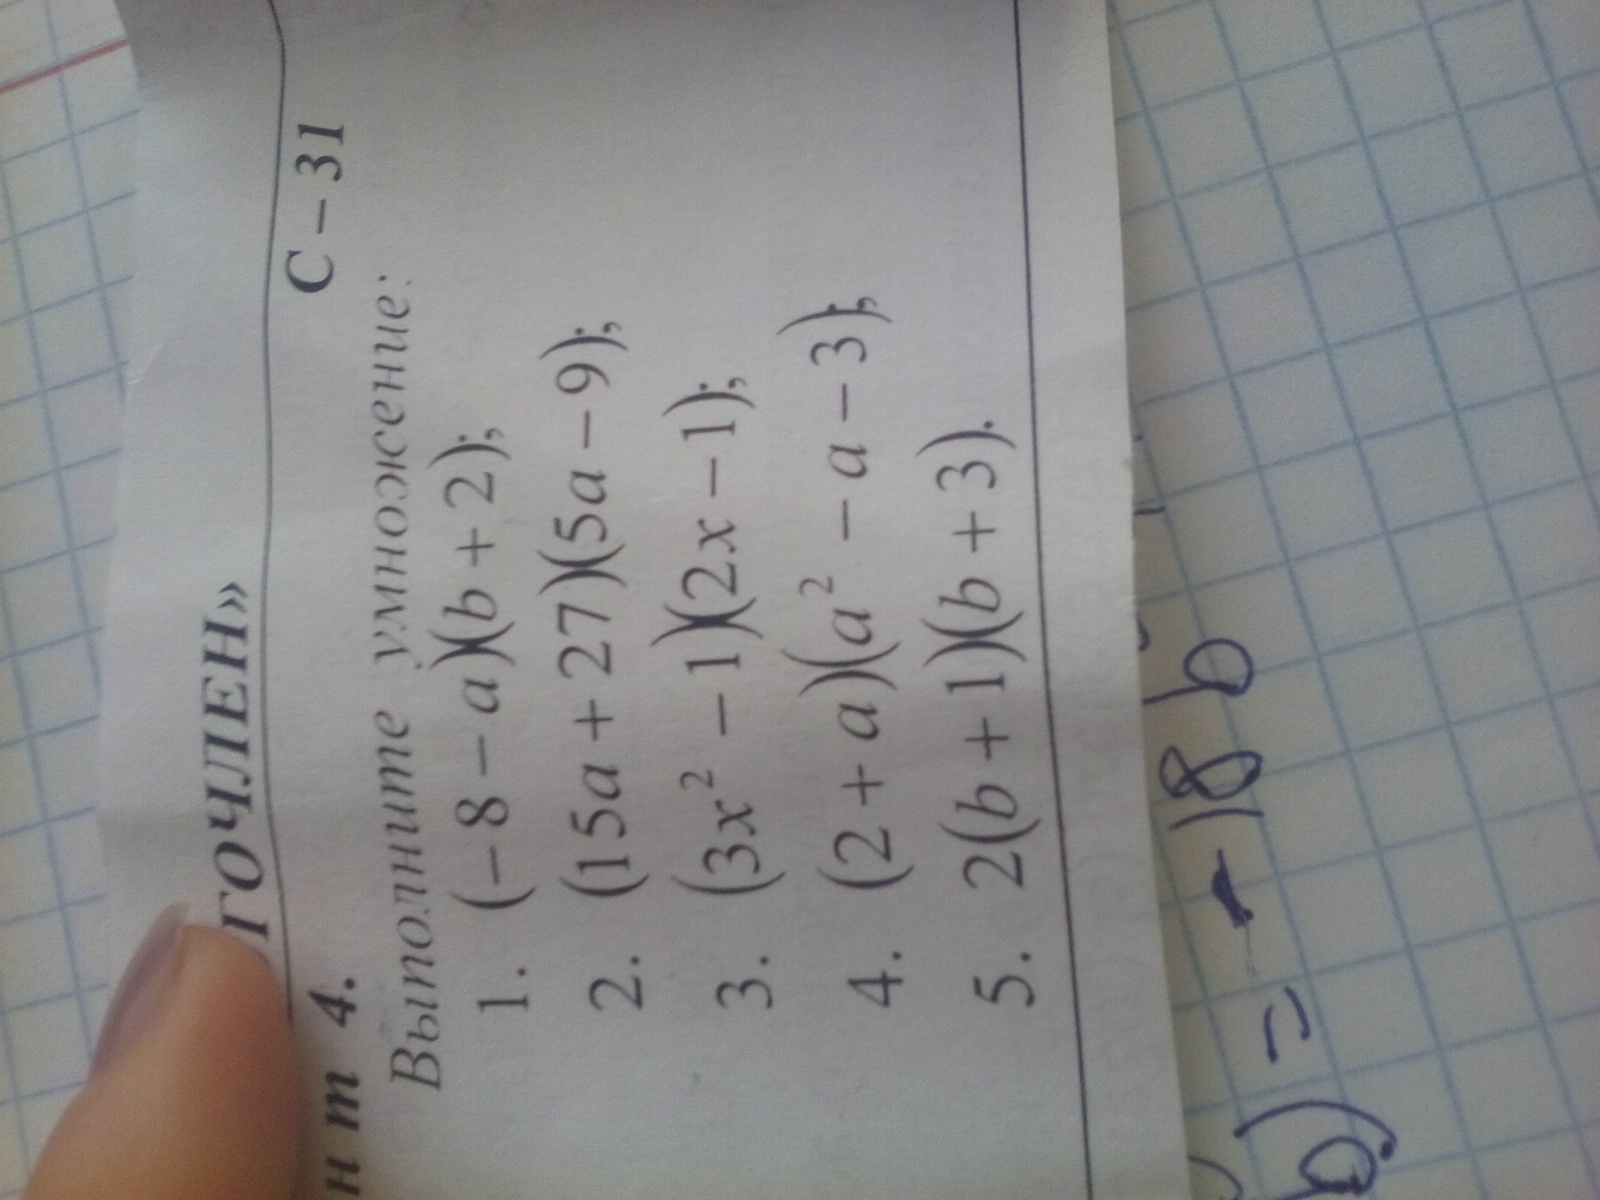 ГОЧЛЕН»
нт 4. С – 31
Выполните умножение:
1. (– 8 – a)(b + 2);
2. (15a + 27)(5a – 9);
3. (3x² – 1)(2x – 1);
4. (2 + a)(a² – a – 3);
5. 2(b + 1)(b + 3).
b) = - 18 b